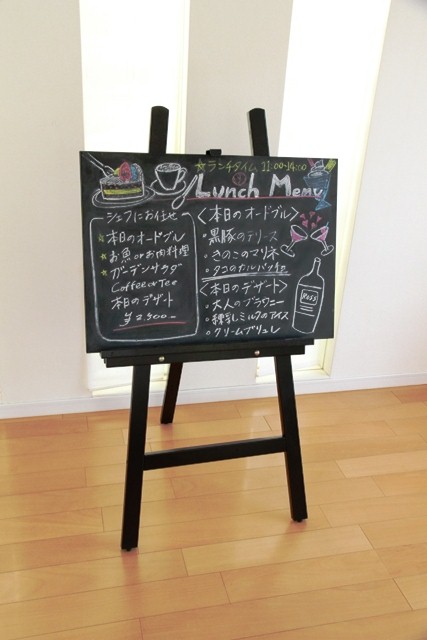 ★ランチタイム 11:00~14:00
Lunch Menu
シェフにお任せ
★本日のオードブル
★お魚orお肉料理
★ガーデンサラダ
Coffee or Tea
本日のデザート
¥2,500ー
<本日のオードブル>
○黒豚のテリーヌ
○きのこのマリネ
○タコのカルパッチョ
<本日のデザート>
○大人のブラウニー
○練乳ミルクのアイス
○クリームブリュレ